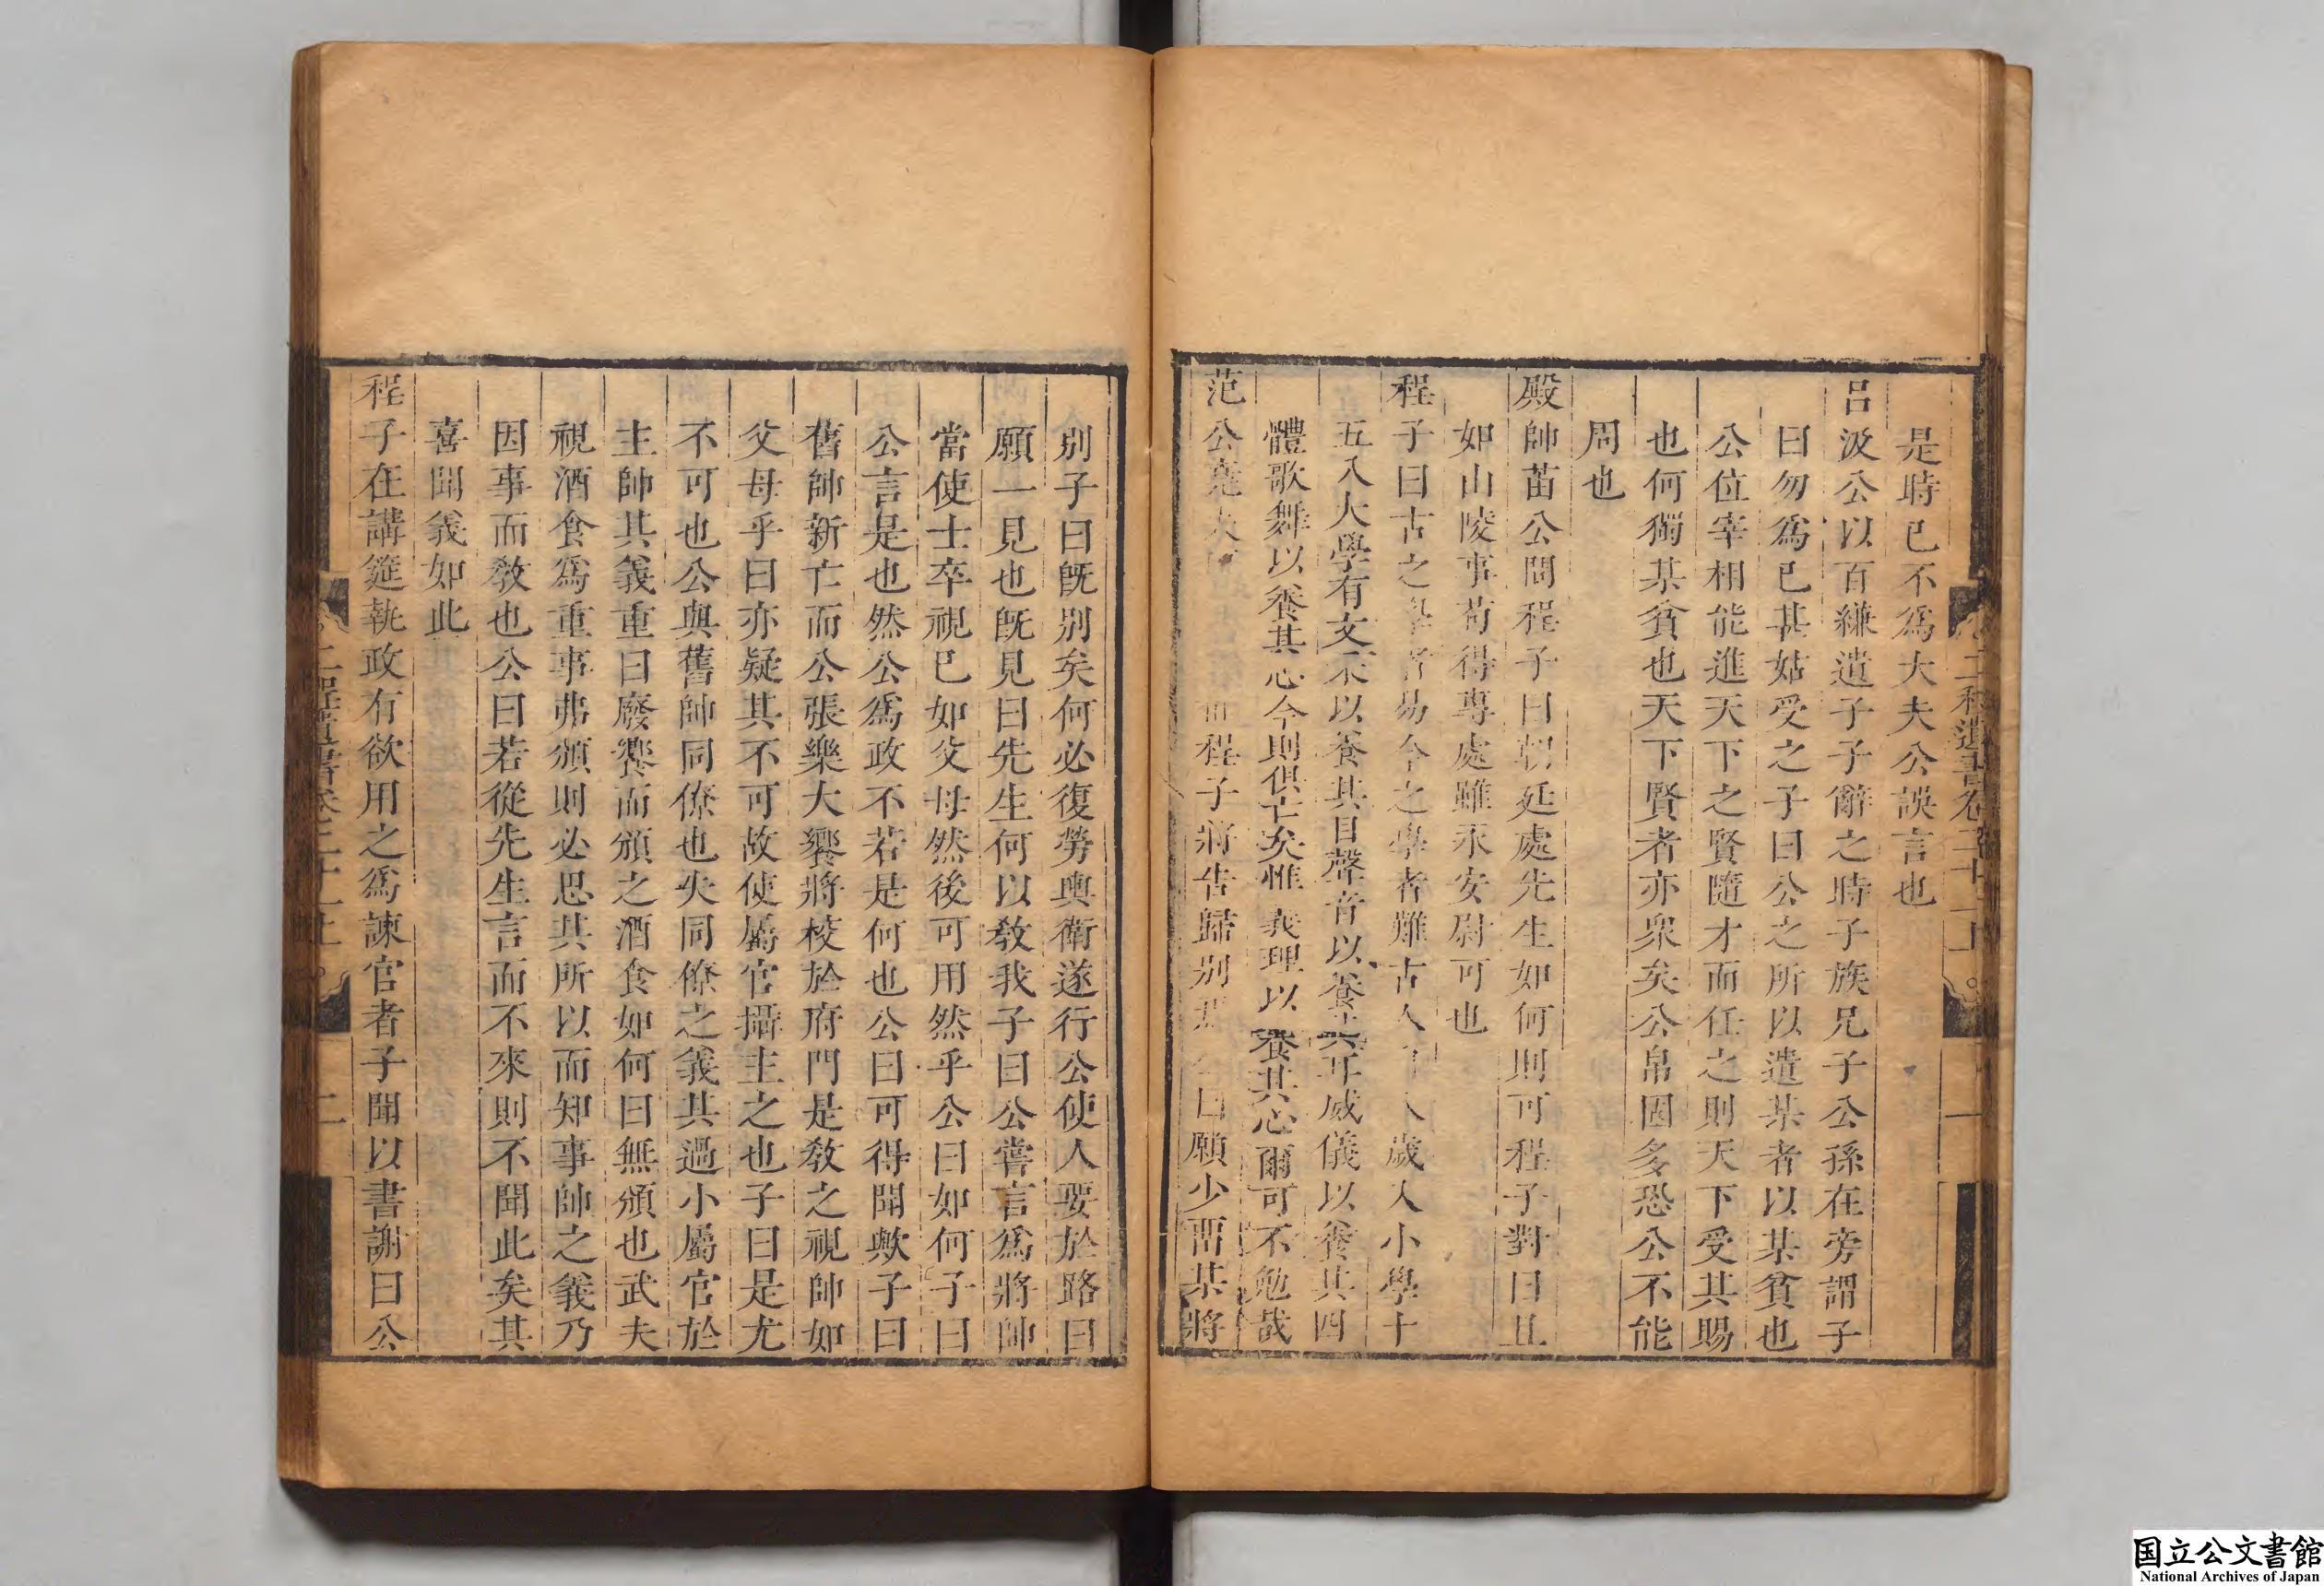 是時已不爲大夫公誤言也
呂汲公以百縑遺子子辭之時子族兄子公孫在旁謂子
曰勿爲已甚姑受之子曰公之所以遺某者以某貧也
公位宰相能進天下之賢隨才而任之則天下受其賜
也何獨某貧也天下賢者亦衆矣公帛固多恐公不能
周也
殿帥苗公問程子曰朝廷處先生如何則可程子對曰且
如山陵事苟得專處雖永安尉可也
程子曰古之學者易今之學者難古人 八歲入小學十
五入大學有文采以養其目聲音以養其耳威儀以養其四
體歌舞以養其心今則俱亡矣惟義理以養其心爾可不勉哉
范公堯夫 程子將告歸別焉 公曰願少留某將
別子曰旣別矣何必復勞輿衛遂行公使人要於路曰
願一見也旣見曰先生何以敎我子曰公嘗言爲將帥
當使士卒視已如父母然後可用然乎公曰如何子曰
公言是也然公爲政不若是何也公曰可得聞歟子曰
舊帥新亡而公張樂大饗將校於府門是敎之視帥如
父母乎曰亦疑其不可故使屬官攝主之也子曰是尤
不可也公與舊帥同僚也失同僚之義其過小屬官於
主帥其義重曰廢饗而頒之酒食如何曰無頒也武夫
視酒食爲重事弗頒則必思其所以而知事帥之義乃
因事而敎也公曰若從先生言而不來則不聞此矣其
喜聞義如此
程子在講筵執政有欲用之爲諫官者子聞以書謝曰公
二程遺書卷二十一上
一
二程遺書卷二十一上
二
国立公文書館
National Archives of Japan